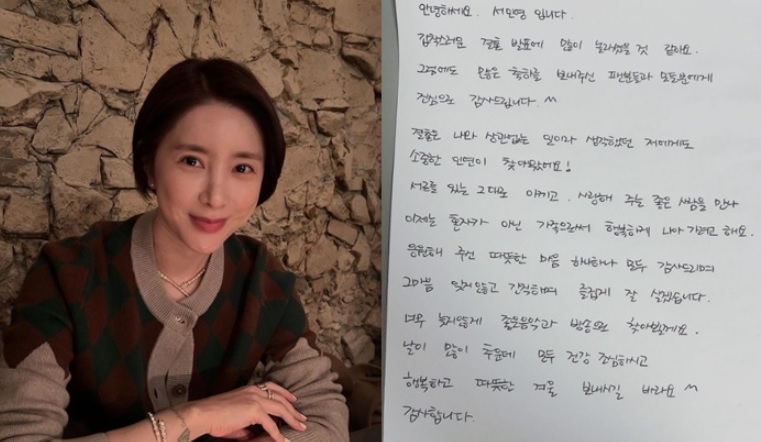 안녕하세요. 서인영 입니다.
갑작스러운 결혼 발표에 많이 놀라셨을 것 같아요.
그럼에도 많은 축하를 보내주신 팬분들과 모든분에게
진심으로 감사드립니다. ^^
결혼은 나와 상관없는 일이라 생각했던 저에게도
소중한 인연이 찾아왔어요!
서로를 있는 그대로 아끼고, 사랑해 주는 좋은 사람을 만나
이제는 혼자가 아닌 가족으로써 행복하게 나아가려고 해요.
응원해 주신 따뜻한 마음 하나하나 모두 감사드리며
그마음 잊지않고 간직하며 즐겁게 잘 살겠습니다.
너무 늦지않게 좋은음악과 방송으로 찾아뵐께요.
날이 많이 추운데 모두 건강 조심하시고
행복하고 따뜻한 겨울 보내시길 바라요 ^^
감사합니다.